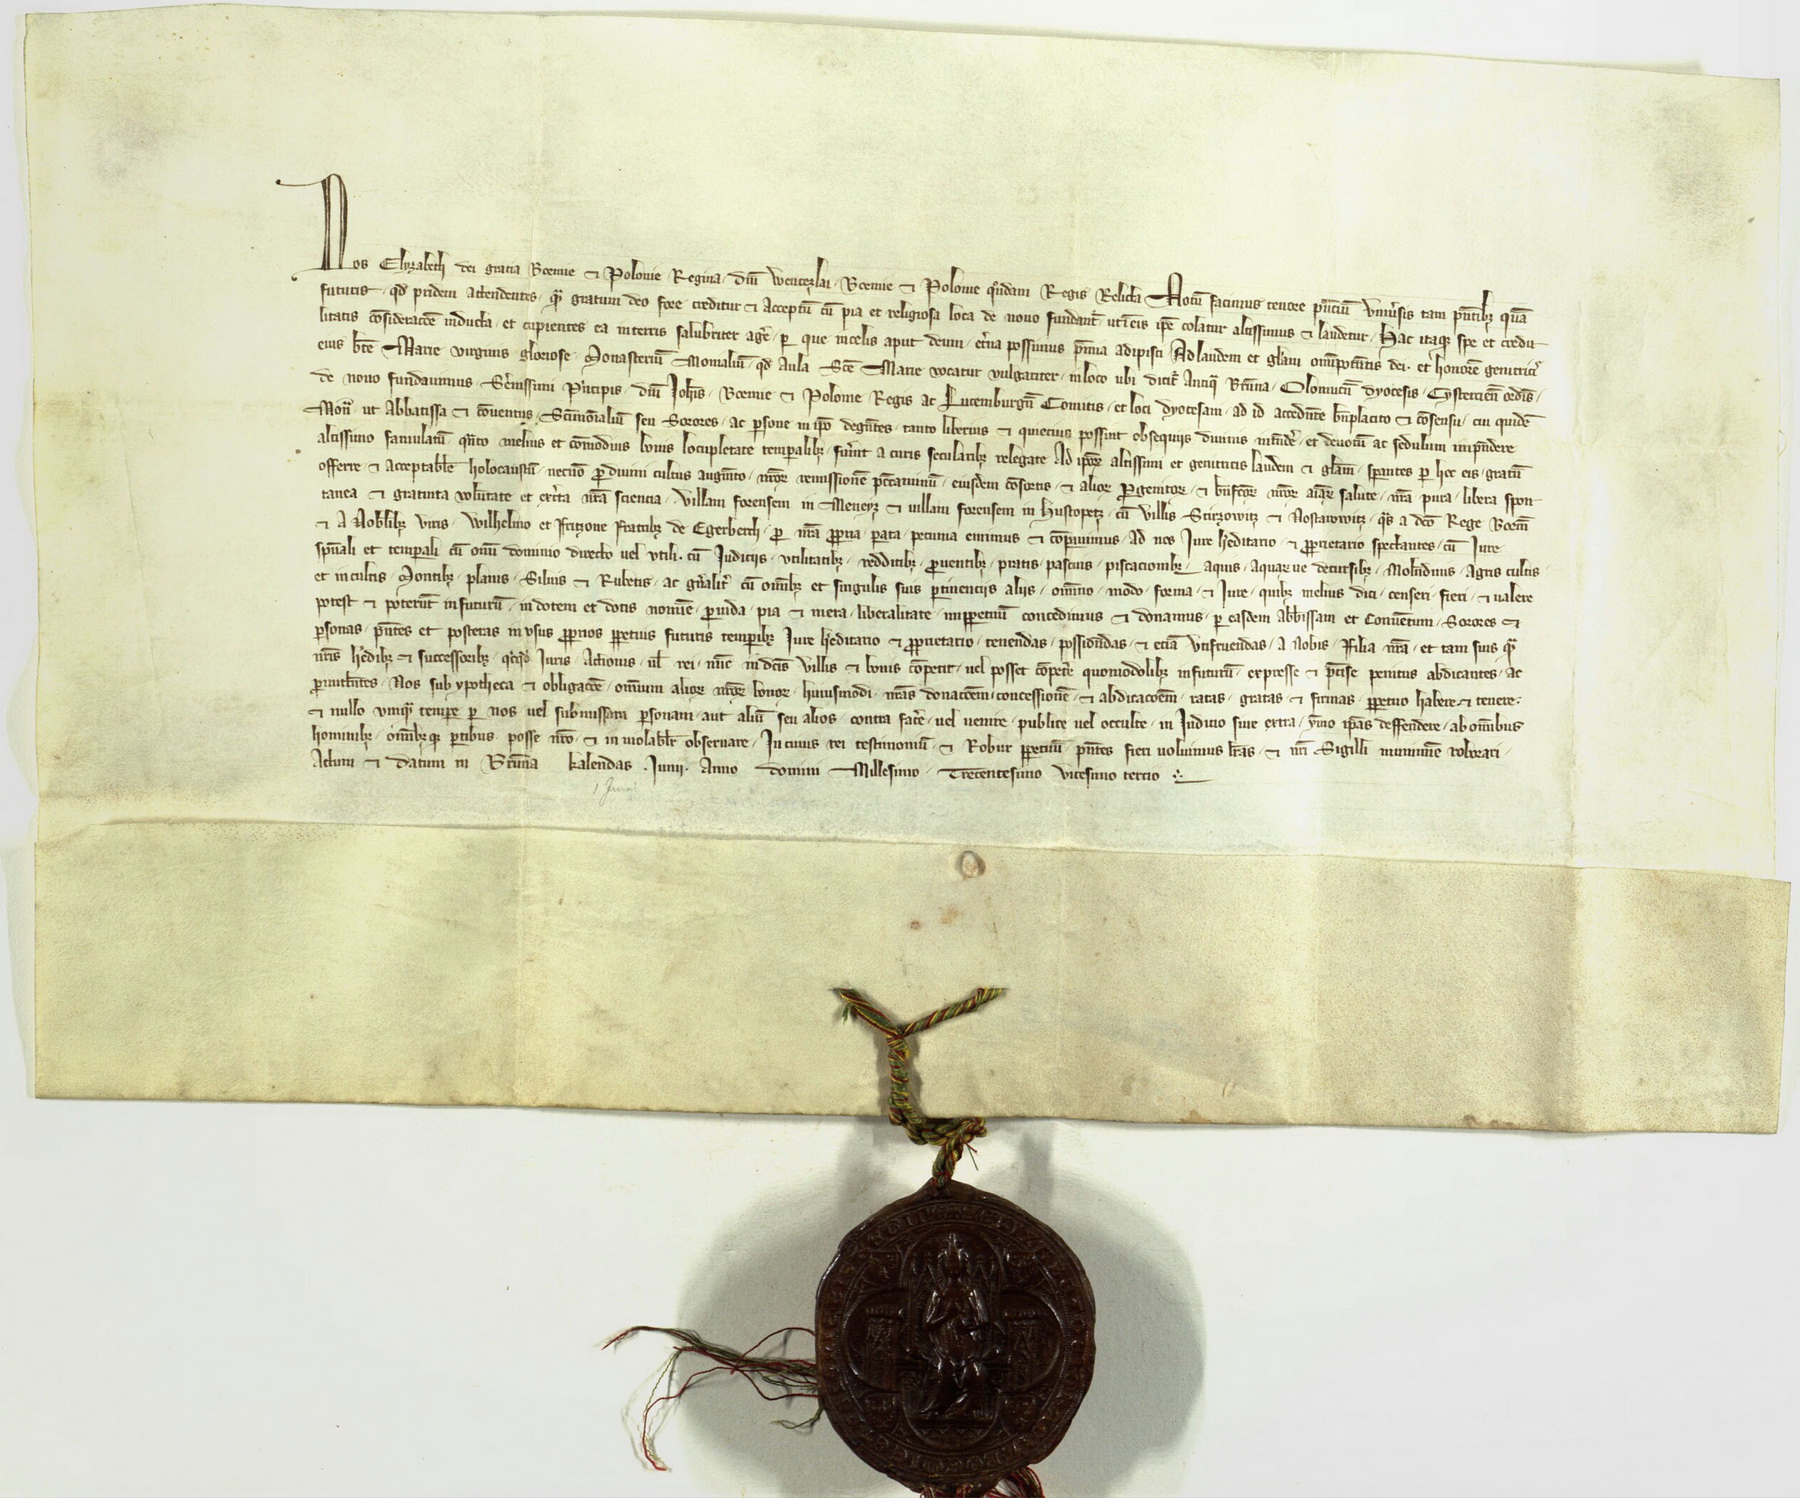 Nos Elyzabeth dei gracia Boemie et Polonie Regina, dn̄i Wencezlai, Boemie et Polonie qn̄dam Regis Relicta Notū facimus tenore pn̄ciū vniu̓sis tam pn̄tibꝫ quā
futuris, qd̓ pridem attendentes, qꝫ gratum deo fore creditur et acceptū cū pia et religiosa loca de nouo fundant᷑, ut ī eis ip̄e colatur altissimus et laudetur, Hac itaqꝫ spe et credu
litatis cōsideracōe inducta, et cupientes ea in terris salubriter ag̓e, ꝑ que in celis aput deum, et̓na possimus p̓mia adipisci Ad laudem et gl̄am om̄ipotn̄tis dei, et honorē genitricꝭ
eius bt̄e Marie virginis gloriose, Monasteriū Monialiū, qd̓ Aula Sc̄e Marie vocatur vulgariter, in loco ubi dicit᷑ Antiqᷓ Brūna, Olomucēn dyocesis, Cystercien̄ ordīs,
de nouo fundauimus, Ser̓nissimi Pn̓cipis, dn̄i Joh̄is, Boemie et Polonie Regis ac Lucemburgen̄ Comitis, et loci dyocesani, ad id accedēte bn̄placito et cōsensu, cui quidē
Mon̄r̓, ut Abbatissa et cōuentus, Sc̄imōialiū seu Sorores, ac ꝑsone in ip̄o degētes, tanto liberius et quiecius possint obsequijs diuinis intēd̓e, et deuotū ac sedulum impēdere
altissimo famulatū, qn̄to melius et cōmodius bonis locupletate tempalibꝫ, fuer̓nt a curis secularibꝫ relegate Ad ipōꝝ altissimi et genitricis laudem et gl̄am, spantes ꝑ hoc eis, gratū
offerre, et acceptabile holocaustū, necnō ꝓ diuini cultus augm̄to, nr̄oꝝ remissionē pc̄caminū, eiusdem cōsortis, et alioꝝ ꝓgenitoꝝ, et bn̄fc̄oꝝ nr̄oꝝ aīaꝝ salute, nr̄a pura, libera spon
tanea et gratuita volūtate et exc̓ta nr̄a sciencia, villam forensem in Meneyꝫ et uillam forensem in Hustopetꝫ, cū villis Scirzowitꝫ et Nostawwitꝫ, qᷓs a dc̄o Rege Boem̄
et A Nobilibꝫ viris, Wilhelmo et Fritzone Fratribꝫ de Egerberch, ꝑ nr̄a ꝓpria, parata, pecunia emimus et cōparauimus, Ad nos Jure h̓editario, et ꝓprietario spectantes, cū Jure
spn̄ali et temporali cū omī dominio directo uel vtili, cū Judicijs, vtilitatibꝫ, redditibꝫ, ꝓuentibꝫ, pratis, pascuis, piscacionibꝫ, aquis, aquarūue decursibꝫ, Molēdinis, Agris cultis
et incultis, Montibꝫ, planis, Siluis et Rubetis, ac gn̄alit̓ cū om̄ibꝫ et singulis suis ꝑtinencijs alijs, om̄imo, modo, forma et Jure, quibꝫ melius dici, censeri, fieri, et valere
potest et poterūt in futurū, in dotem et dotis nomīe, ꝓuida, pia et mera, liberalitate, imꝑpetuū concedimus et donamus, ꝑ easdem abb̄issam et Conuētum, Sorores et
ꝑsonas, pn̄tes et posteras in vsus ꝓprios ꝑpetuis futuris temporibꝫ Jure h̓editario et ꝓprietario, tenendas, possidēdas, et eciā vtifruendas, A nobis, Filia nr̄a, et tam suis qᷓ
nr̄is h̓edibꝫ et successoribꝫ, quicqd̓ Juris, Actionis, ul̄ rei, nūc in dc̄is villis et bonis cōpetit, uel posset cōpet̓e quomodolibꝫ in futurū, expresse et p̄cise penitus abdicantes, Ac
ꝓmittētes, Nos sub ypotheca et obligacōe, om̄ium alioꝝ nr̄oꝝ bonoꝝ, huiusmodi, nr̄as donacōem, concessionē, et abdicacōem, ratas, gratas et firmas, ꝑpetuo habere et tenere,
et nullo vnqᷓ tempore ꝑ nos uel submissam ꝑsonam, aut aliū seu alios, contra fac̓e, uel uenire, publice uel occulte, in Judicio siue extra, ymo ip̄as deffendere, ab om̄ibus
hominibꝫ, om̄ibꝫqꝫ ꝑtibus posse nr̄o, et inuiolabilit̓ obseruare, In cuius rei testimoniū et Robur ꝑpetuū, pn̄tes fieri uoluimus lr̄as, et nr̄i Sigilli munimīe roborari,
Actum et datum in Brūna kalendas Junij, Anno domini Millesimo, Trecentesimo vicesimo tercio
1 Juni